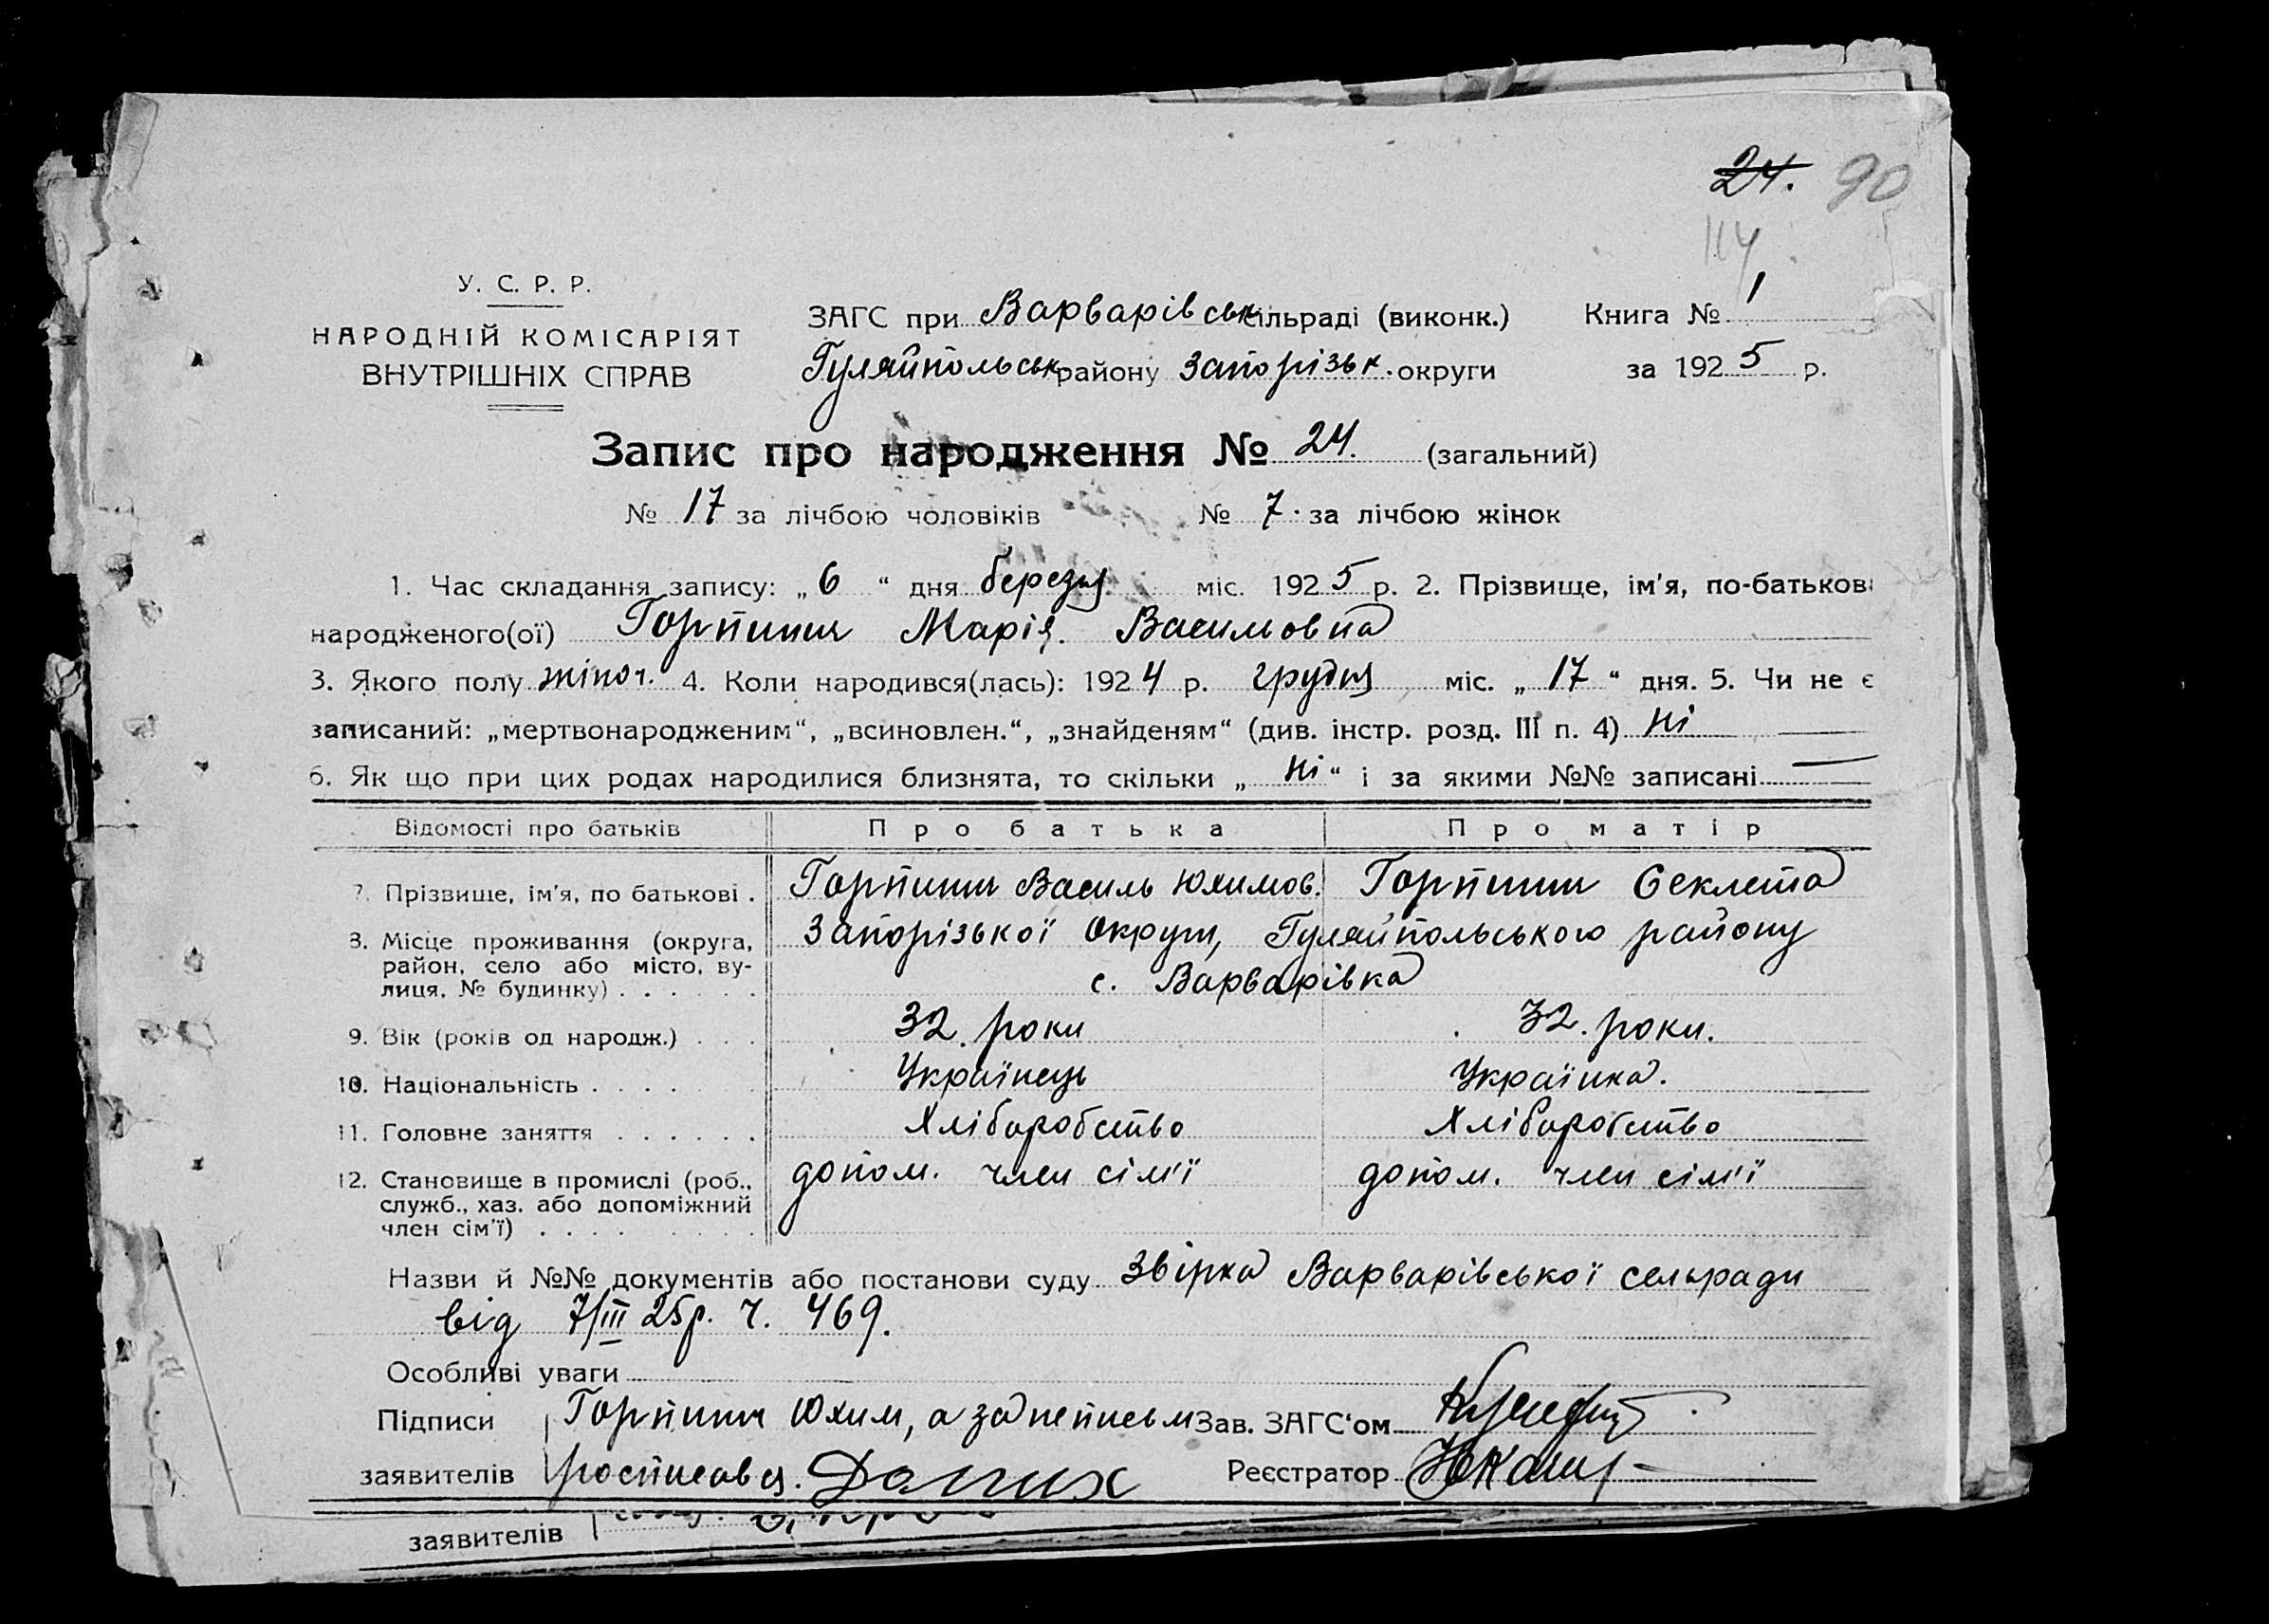 24. 90
114
У. С. Р. Р.
НАРОДНІЙ КОМІСАРІЯТ
ВНУТРІШНІХ СПРАВ
ЗАГС при Варварівськ сільраді (виконк.) Книга № 1
Гуляйпольськ району Запорізьк. округи за 1925 р.
Запис про народження № 24. (загальний)
№ 17 за лічбою чоловіків № 7. за лічбою жінок
1. Час складання запису: „6“ дня березня міс. 1925 р. 2. Прізвище, ім'я, по-батькові
народженого(ої) Горпинич Марія. Васильовна
3. Якого полу жіноч. 4. Коли народився(лась): 1924 р. грудня міс. „17“ дня. 5. Чи не є
записаний: „мертвонародженим“, „всиновлен.“, „знайденям“ (див. інстр. розд. III п. 4) Ні
6. Як що при цих родах народилися близнята, то скільки „Ні“ і за якими №№ записані —
Відомості про батьків Про батька Про матір
7. Прізвище, ім'я, по батькові . Горпинич Василь Юхимов. Горпинич Секлета
8. Місце проживання (округа, Запорізької Округи, Гуляйпольського району
район, село або місто, ву- с. Варварівка
лиця, № будинку) . . . . . .
9. Вік (років од народж.) . . . 32 роки 32. роки.
10. Національність . . . . Українець Українка.
11. Головне заняття . . . . . . Хліборобство Хліборобство
12. Становище в промислі (роб., допом. член сім'ї допом. член сім'ї
служб., хаз. або допоміжний
член сім'ї) . . . . . . . .
Назви й №№ документів або постанови суду Звірка Варварівської сельради
від 7/III 25р. ч. 469.
Особливі уваги
Підписи Горпинич Юхим, а за неписьм Зав. ЗАГС'ом
заявителів росписався. Реєстратор
заявителів